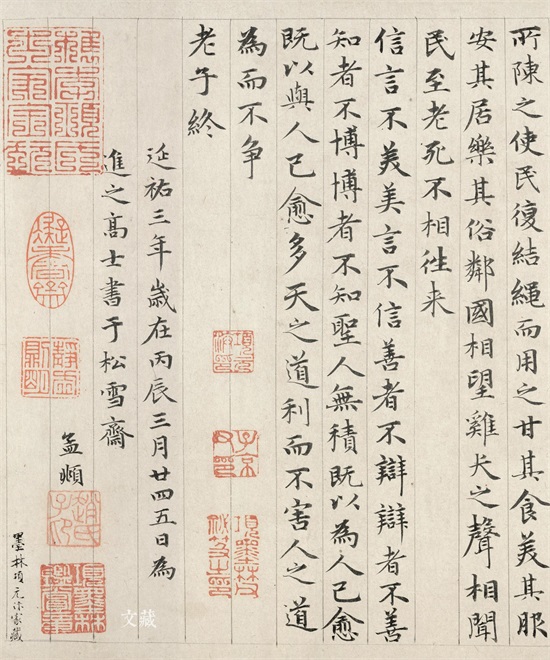 所陳之使民復結繩而用之甘其食美其服
安其居樂其俗鄰國相望雞犬之聲相聞
民至老死不相往来
信言不美美言不信善者不辯辯者不善
知者不博博者不知聖人無積既以為人已愈
既以與人已愈多天之道利而不害人之道
為而不争
老子終
項元汴印
子京父印
項墨林父秘笈之印
延祐三年歲在丙辰三月廿四五日為
進之高士書于松雪齋
孟頫
趙氏子昂
項墨林鑑賞章
墨林項元汴家藏
文藏